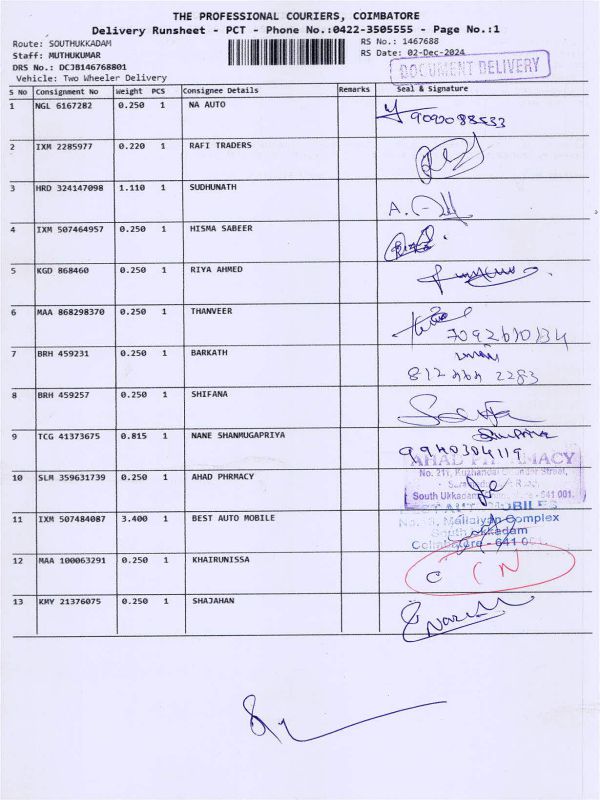 THE PROFESSIONAL COURIERS, COIMBATORE
Delivery Runsheet - PCT - Phone No.:0422-3505555 - Page No.:1
Route: SOUTHUKKADAM RS No.: 1467688
Staff: MUTHUKUMAR RS Date: 02-Dec-2024
DRS No.: DCJB146768801 DOCUMENT DELIVERY
Vehicle: Two Wheeler Delivery
S No Consignment No Weight PCS Consignee Details Remarks Seal & Signature
1 NGL 6167282 0.250 1 NA AUTO
2 IXM 2285977 0.220 1 RAFI TRADERS
3 HRD 324147098 1.110 1 SUDHUNATH
4 IXM 507464957 0.250 1 HISMA SABEER
5 KGD 868460 0.250 1 RIYA AHMED
6 MAA 868298370 0.250 1 THANVEER
7092610134
7 BRH 459231 0.250 1 BARKATH
8 BRH 459257 0.250 1 SHIFANA
9 TCG 41373675 0.815 1 NANE SHANMUGAPRIYA
9940304119
10 SLM 359631739 0.250 1 AHAD PHRMACY AHAD PHARMACY
No. 211,
South Ukkadam 641 001.
11 IXM 507484087 3.400 1 BEST AUTO MOBILE BEST AUTOMOBILES
Complex
South Ukkadam
Coimbatore - 641 001.
12 MAA 100063291 0.250 1 KHAIRUNISSA C IN
13 KMY 21376075 0.250 1 SHAJAHAN